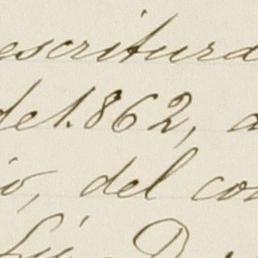 escritura
de 1.862, a
io, del con